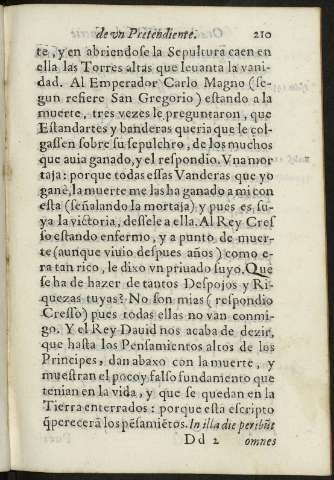 de vn Pretendiente. 210
te, y en abriendose la Sepultura caen en
ella las Torres altas que leuanta la vani-
dad. Al Emperador Carlo Magno (se-
gun refiere San Gregorio) estando a la
muerte, tres vezes le preguntaron, que
Estandartes y banderas queria que le col-
gassen sobre su sepulchro, de los muchos
que auia ganado, y el respondio. Vna mor-
taja: porque todas essas Vanderas que yo
gané, la muerte me las ha ganado a mi con
esta (señalando la mortaja) y pues es su-
ya la victoria, dessele a ella. Al Rey Cres
so estando enfermo, y a punto de muer-
te (aunque viuio despues años) como e-
ra tan rico, le dixo vn priuado suyo. Que
se ha de hazer de tantos Despojos y Ri-
quezas tuyas? No son mias (respondio
Cresso) pues todas ellas no van conmi-
go. Y el Rey Dauid nos acaba de dezir,
que hasta los Pensamientos altos de los
Principes, dan abaxo con la muerte, y
muestran el poco y falso fundamento que
tenian en la vida, y que se quedan en la
Tierra enterrados: porque esta escripto
q̃ perecerà los pẽsamiẽtos. In illa die peribũt
Dd 2 omnes